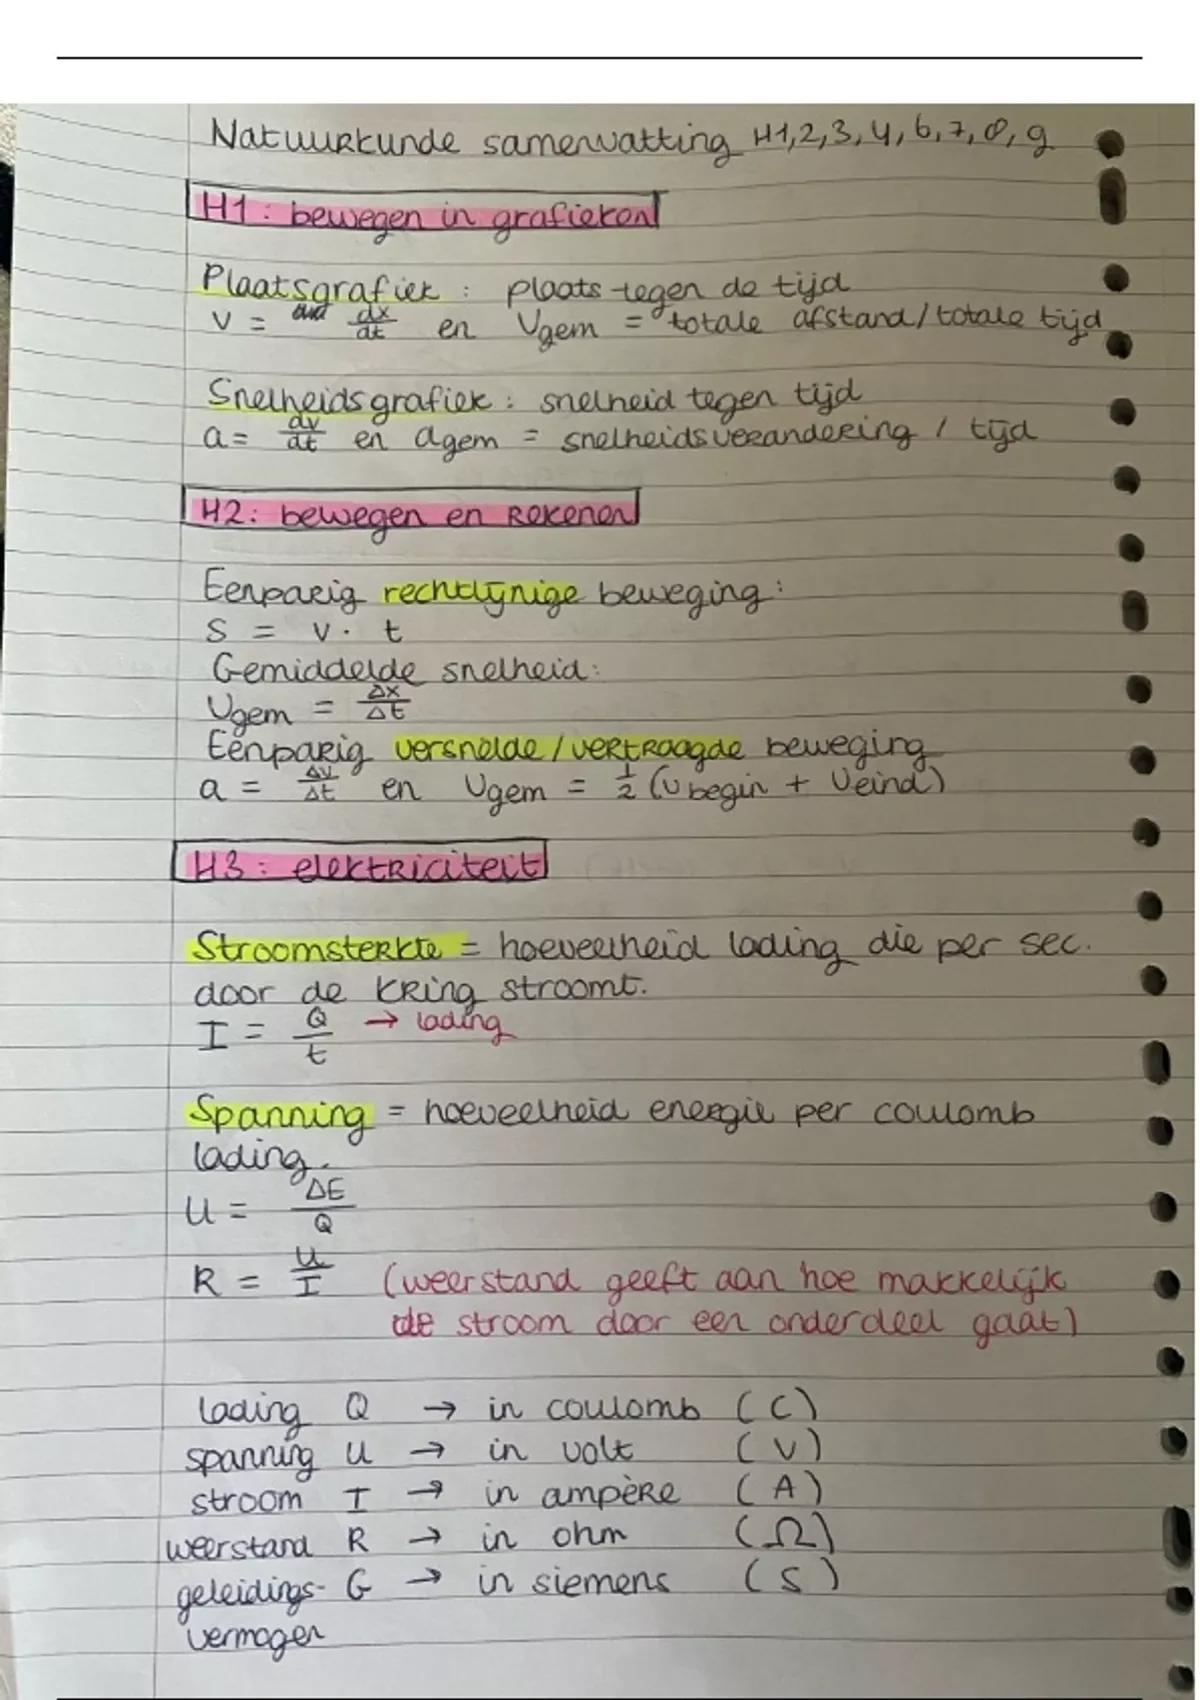 Natuurkunde samenvatting H1,2,3,4,6,7,8,9
H1: bewegen in grafieken
Plaatsgrafiek : plaats tegen de tijd
v = dx/dt en Vgem = totale afstand/totale tijd
Snelheidsgrafiek : snelheid tegen tijd
a = dv/dt en agem = snelheidsverandering / tijd
H2: bewegen en rekenen
Eenparig rechtlijnige beweging:
S = v · t
Gemiddelde snelheid:
Vgem = Δx/Δt
Eenparig versnelde/vertraagde beweging
a = Δv/Δt en Vgem = 1/2 (v begin + Veind)
H3: elektriciteit
Stroomsterkte = hoeveelheid lading die per sec.
door de kring stroomt.
I = Q/t → lading
Spanning = hoeveelheid energie per coulomb
lading.
U = ΔE/Q
R = U/I (weerstand geeft aan hoe makkelijk
de stroom door een onderdeel gaat)
lading Q → in coulomb (C)
spanning U → in volt (V)
stroom I → in ampère (A)
weerstand R → in ohm (Ω)
geleidings- G → in siemens (S)
vermogen